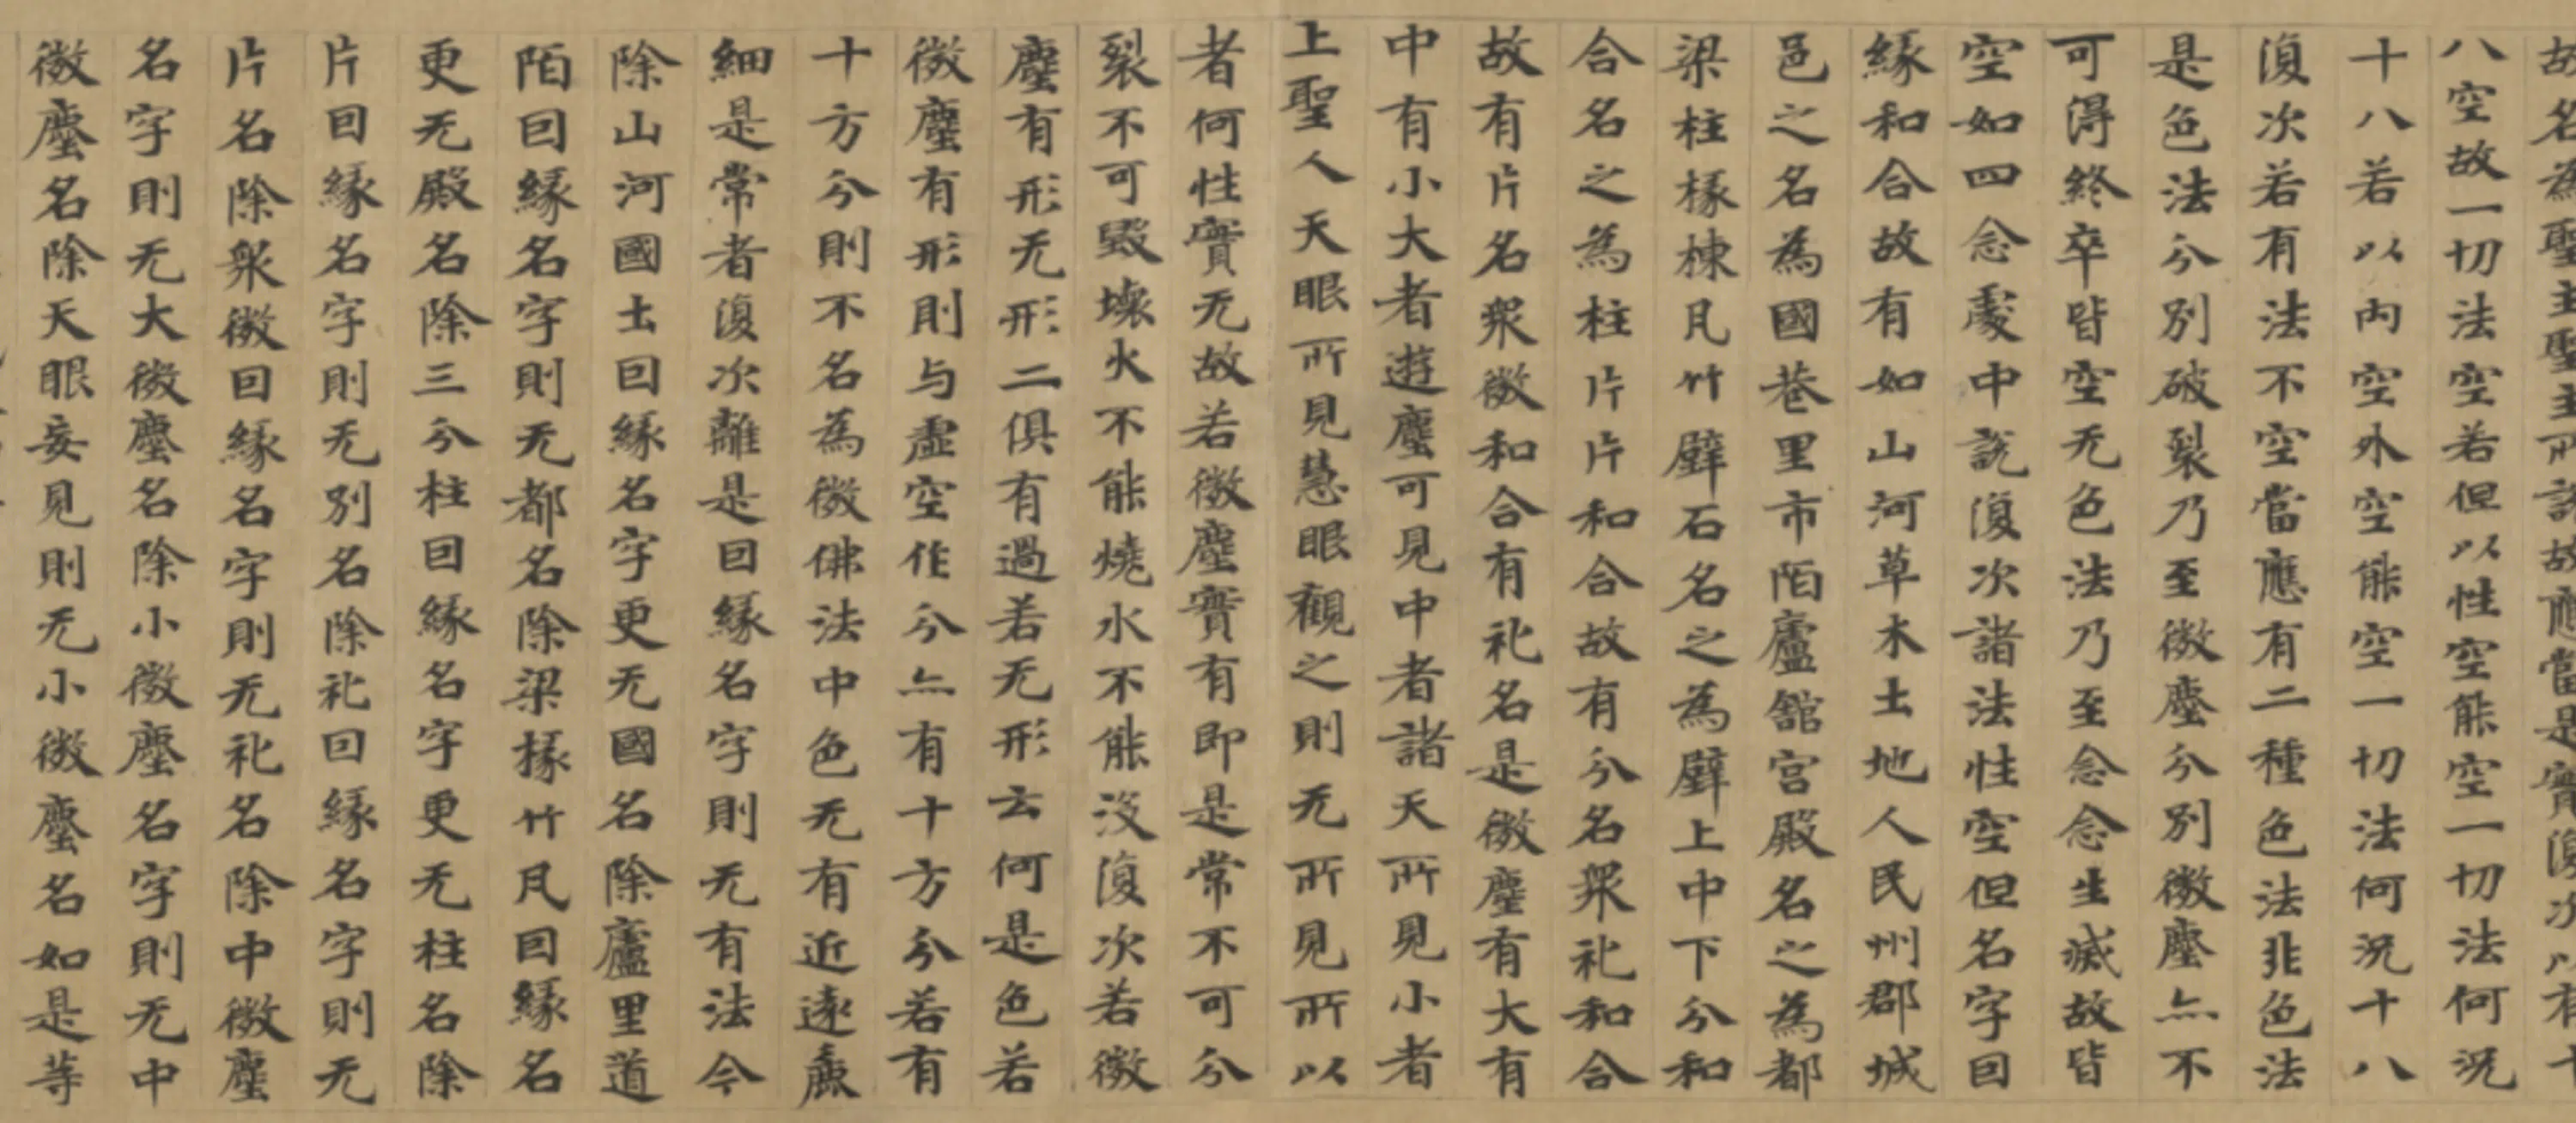 故名為聖主聖主所說故應當是實復次以有十
八空故一切法空若但以性空能空一切法何況
十八若以内空外空能空一切法何況十八
復次若有法不空當應有二種色法非色法
是色法分別破裂乃至微塵分別微塵亦不
可得終卒皆空无色法乃至念念生滅故皆
空如四念處中說復次諸法性空但名字因
緣和合故有如山河草木土地人民州郡城
邑之名為國巷里市陌廬舘宮殿名之為都
梁柱椽棟瓦竹壁石名之為壁上中下分和
合名之為柱片片和合故有分名衆札和合
故有片名衆微和合有札名是微塵有大有
中有小大者遊塵可見中者諸天所見小者
上聖人天眼所見慧眼觀之則无所見所以
者何性實无故若微塵實有即是常不可分
裂不可毀壞火不能燒水不能沒復次若微
塵有形无形二俱有過若无形云何是色若
微塵有形則与虛空作分亦有十方分若有
十方分則不名為微佛法中色无有近遠麁
細是常者復次離是因緣名字則无有法今
除山河國土因緣名字更无國名除廬里道
陌因緣名字則无都名除梁椽竹瓦因緣名
更无殿名除三分柱因緣名字更无柱名除
片因緣名字則无別名除札因緣名字則无
片名除衆微因緣名字則无札名除中微塵
名字則无大微塵名除小微塵名字則无中
微塵名除天眼妄見則无小微塵名如是等